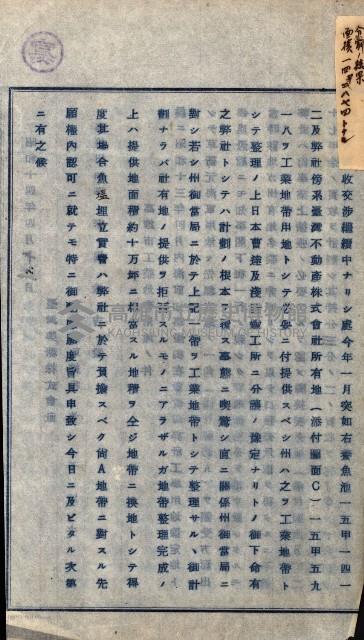 收交涉繼續中ナリシ處今年一月突如右養魚池一五甲一四一
二及弊社傍系臺灣不動產株式會社所有地(添付圖面C)一五甲五九
一八ヲ工業地帶用地トシテ必要ニ付提供スベシ州ハ之ヲ工業地帶ト
シテ整理ノ上日本曹達及淺野電工所ニ分讓ノ豫定ナリトノ御下命有
之弊社トシテハ計劃ノ根本ヲ覆ス事態ニ喫驚シ直ニ關係州御當局ニ
對シ若シ州御當局ニ於テ上記一帶ヲ工業地帶トシテ整理サルヽ御計
劃ナラバ社有地ノ提供ヲ拒否スルモノニアラザルガ地帶整理完成ノ
上ハ提供地面積約十萬坪ニ相當スル地積ヲ仝ジ地帶ニ換地トシテ得
度其場合魚塭埋立實費ハ弊社ニ於テ負擔スベク尙A地帶ニ對スル先
願權內認可ニ就テモ特ニ御
度旨具申致シ今日ニ及ビタル次第
ニ有之候
高雄市立歷史博物館
KAOHSIUNG MUSEUM OF HISTORY